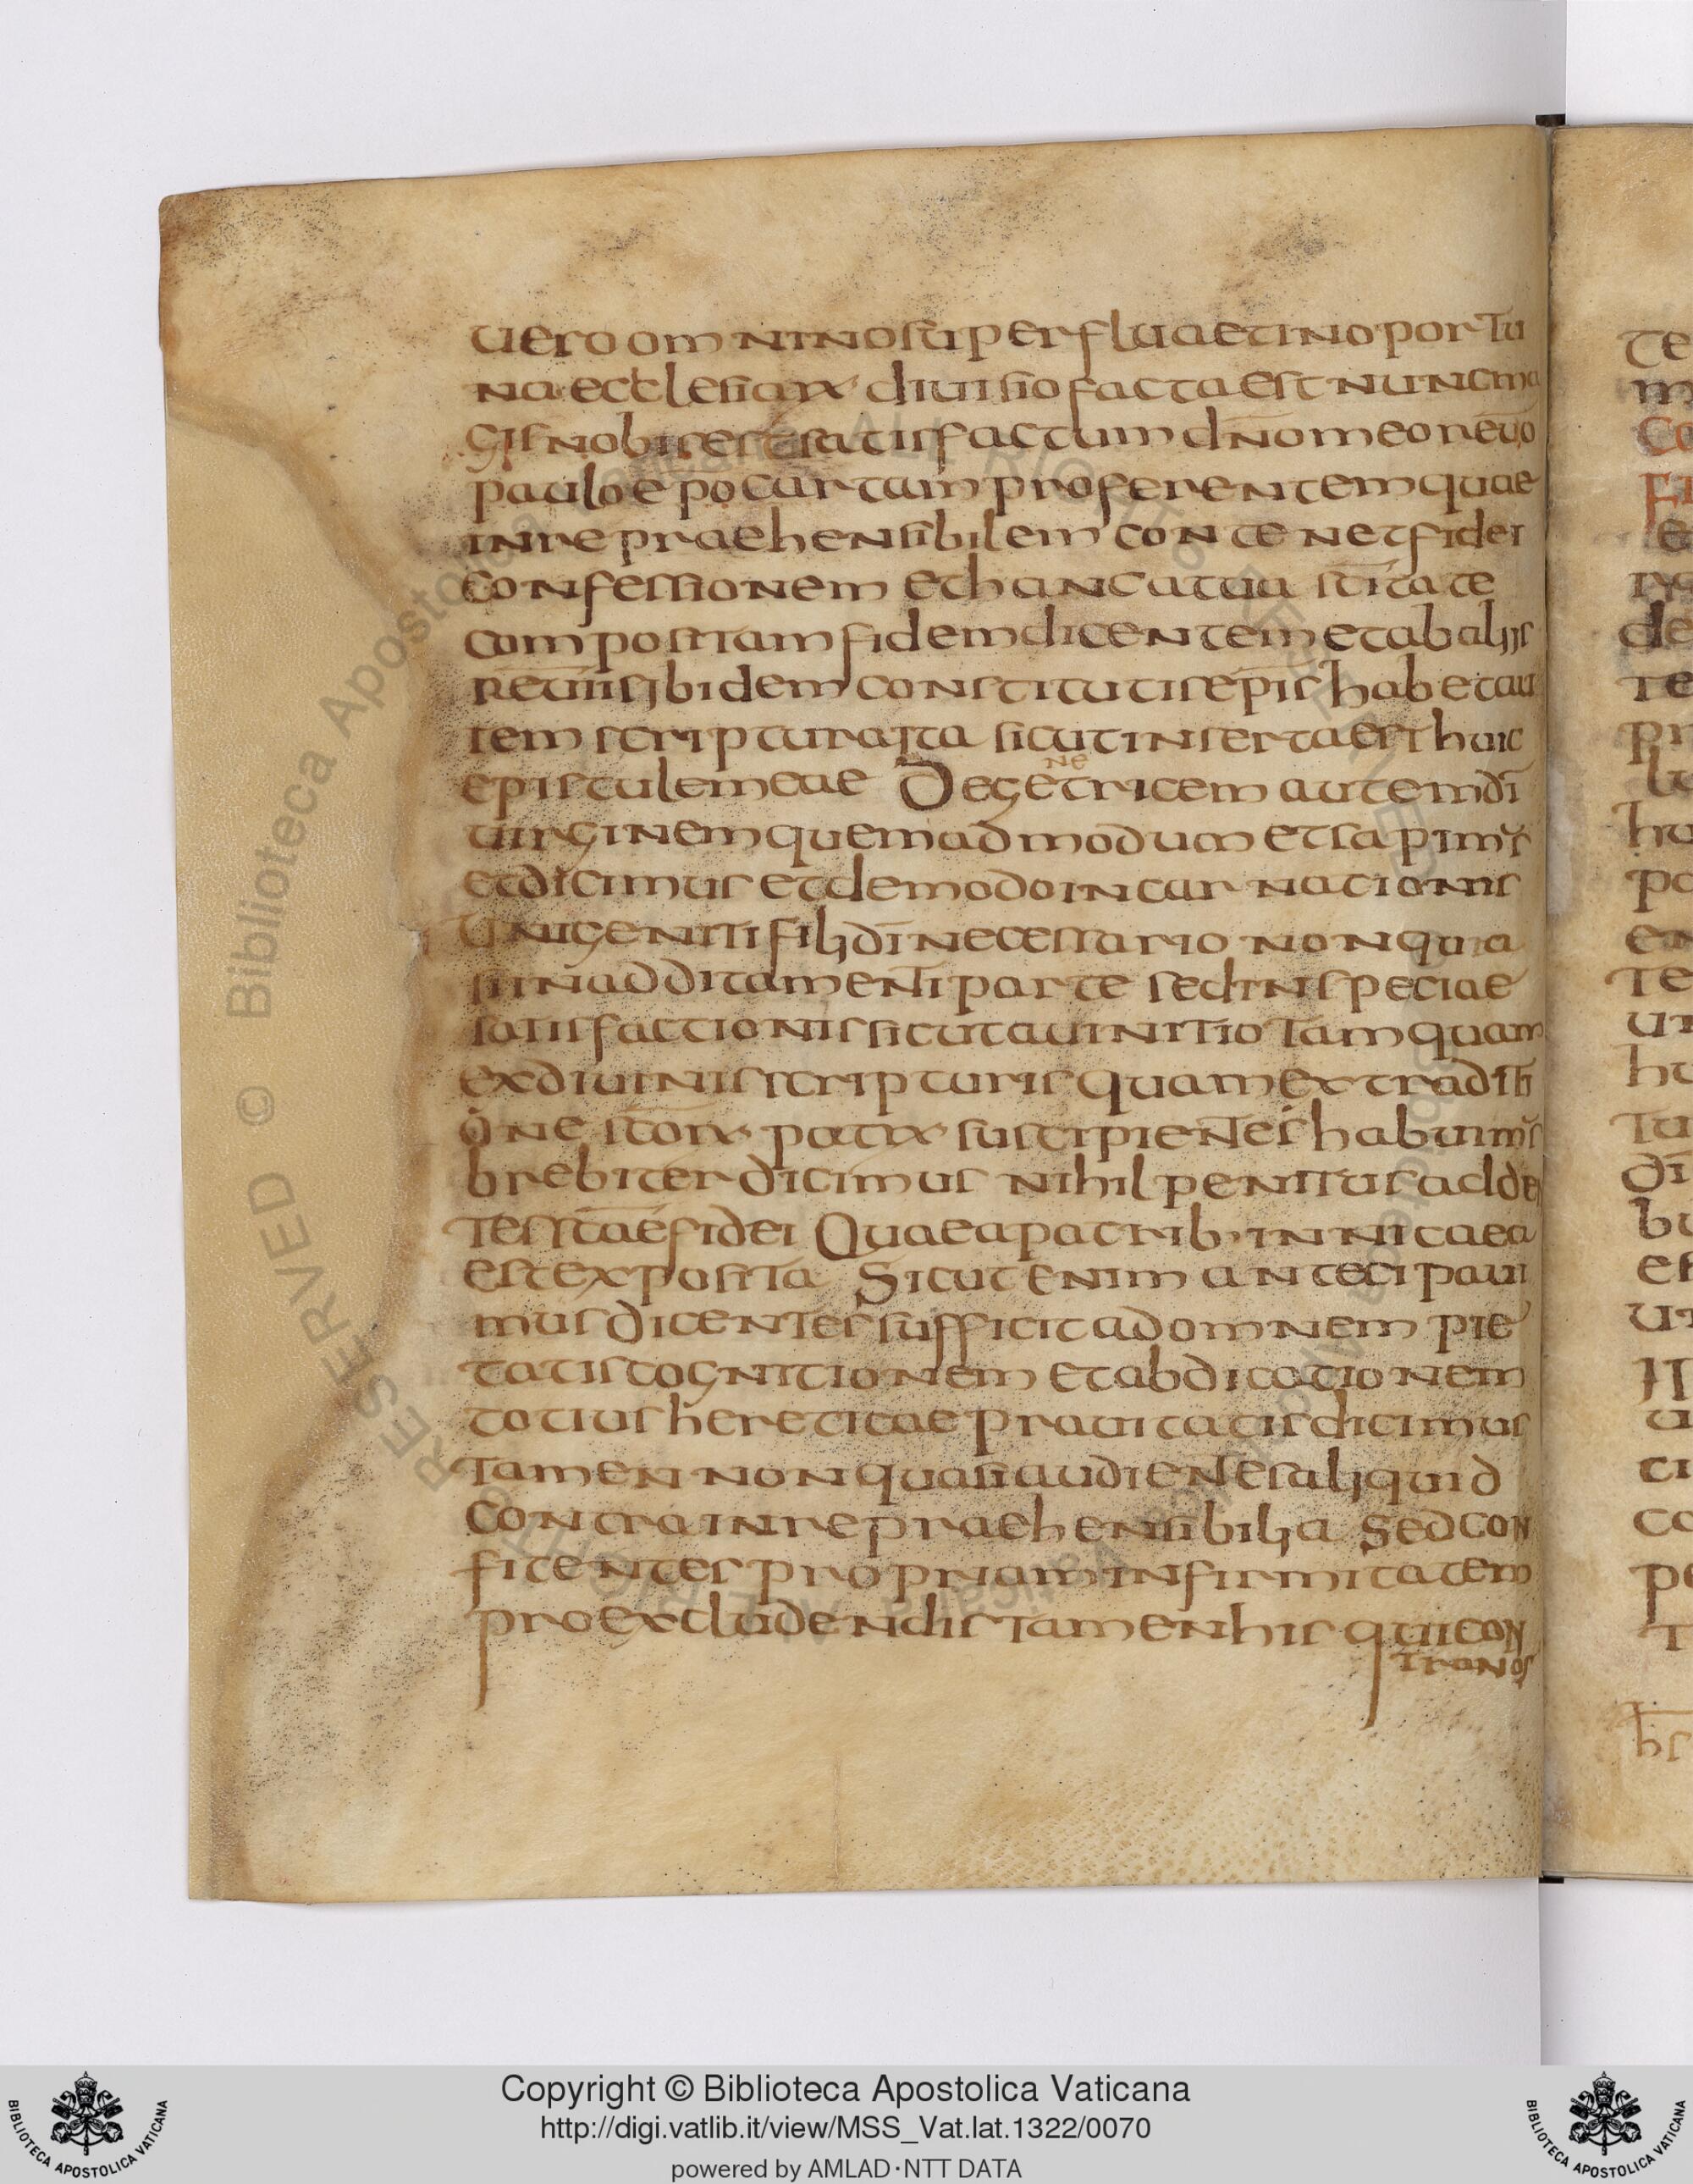 uero omnino superflua et inoportu
na ecclesiarx diuisio facta est nunc ma
gis nobis est satisfactum dn̄o meo reu̅o
paulo epo cartam proferentem quae
inrepraehensibilem contenet fidei
confessionem et hanc a tua sc̄itate
compositam fidem dicentem et ab aliis
reu̅iis ibidem constitutis ep̄is habet au
tem scriptura ita sicut inserta est huic
epistule meae De genetricem autem dī
uirginem quemadmodum et sapimus
et dicimus et de modo incarnationis
unigeniti filii dī necessario non quia
sin additamenti parte sed in speciae
satisfactionis sicut au initio tam quam
ex diuinis scripturis quam ex traditi
one sc̄orx patrx suscipientes habuimus
brebiter dicimus nihil penitus adden
tes sc̄ae fidei Quae a patrib· in nicaea
est exposita Sicut enim antecipaui
mus dicentes sufficit ad omnem pie
tatis cognitionem et abdicationem
totius hereticae prauitatis dicimus
tamen non quasi audientes aliquid
contra inrepraehensibilia sed con
fitentes propriam infirmitatem
pro excludendis tamen his qui con
tra nos
Copyright © Biblioteca Apostolica Vaticana
http://digi.vatlib.it/view/MSS_Vat.lat.1322/0070
powered by AMLAD·NTT DATA